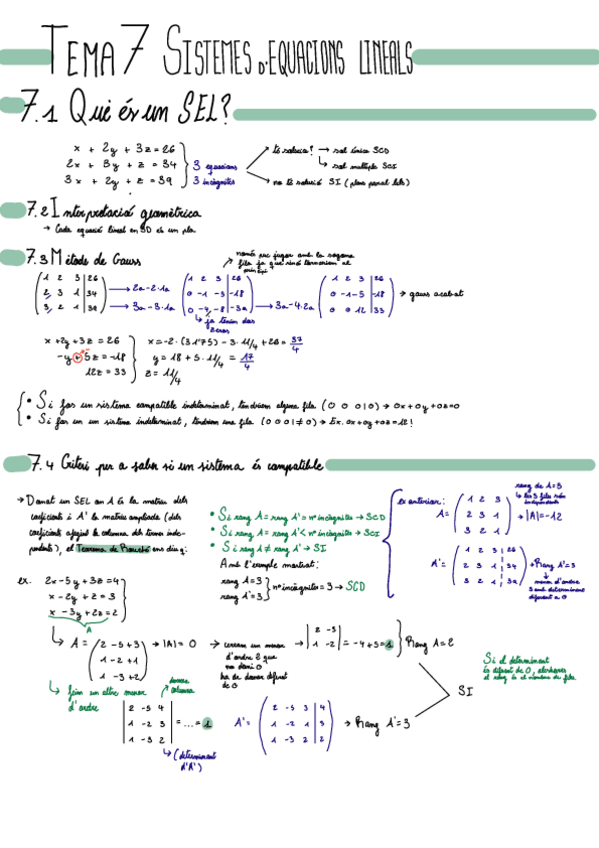 TEMA 7 SISTEMES D'EQUACIONS LINEALS
7.1 Què és un SEL?
x + 2y + 3z = 26
2x + 3y + z = 34
3x + 2y + z = 39
3 equacions
3 incògnites
té solució? → sol única SCD
→ sol múltiple SCI
→ no té solució SI (plans paral·lels)
7.2 Interpretació geomètrica
→ Cada equació lineal en 3D és un pla
7.3 Mètode de Gauss
només puc jugar amb la segona
fila ja que sinó tornariem al
principi
1 2 3 | 26
2 3 1 | 34
3 2 1 | 39
→ 2a - 2·1a
→ 3a - 3·1a
1 2 3 | 26
0 -1 -5 | -18
0 -4 -8 | -39
→ ja tenim dos
zeros
→ 3a - 4·2a
1 2 3 | 26
0 -1 -5 | -18
0 0 12 | 33
→ gauss acabat
x + 2y + 3z = 26
-y + 5z = -18
12z = 33
x = -2 · (3175) - 3 · 11/4 + 26 = 37/4
y = 18 + 5 · 11/4 = 17/4
z = 11/4
• Si fos un sistema compatible indeterminat, tendríem alguna fila (0 0 0 | 0) → 0x + 0y + 0z = 0
• Si fos un sistema indeterminat, tendríem una fila (0 0 0 | ≠ 0) → Ex. 0x + 0y + 0z = 12!
7.4 Criteri per a saber si un sistema és compatible
→ Donat un SEL on A és la matriu dels
coeficients i A' la matriu ampliada (dels
coeficients afegint la columna dels termes inde-
pendents), el Teorema de Rouché ens diu q:
• Si rang A = rang A' = nº incògnites → SCD
• Si rang A = rang A' < nº incògnites → SCI
• Si rang A ≠ rang A' → SI
Amb l'exemple mostrat:
rang A = 3
rang A' = 3
nº incògnites = 3 → SCD
ex anterior:
A =
1 2 3
2 3 1
3 2 1
→ |A| = -12
rang de A = 3
↳ les 3 files són
independents
A' =
1 2 3 | 26
2 3 1 | 34
3 2 1 | 39
→ Rang A' = 3
menor d'ordre
3 amb determinant
diferent a 0
ex.
2x - 5y + 3z = 4
x - 2y + z = 3
x - 3y + 2z = 2
A
↳ A =
2 -5 +3
1 -2 +1
1 -3 +2
→ |A| = 0
→ cercam un menor
d'ordre 2 que
no doni 0
ha de donar difrent
de 0
→
2 -5
1 -2
= -4 + 5 = 1
Rang A = 2
↳ feim un altre menor
d'ordre
darrera
columna
2 -5 4
1 -2 3
1 -3 2
= ... = 1
↳ (determinant
d'A')
A' =
2 -5 3 | 4
1 -2 1 | 3
1 -3 2 | 2
→ Rang A' = 3
SI
Si el determinant
és difrent de 0, aleshores
el rang és el nombre de fila.